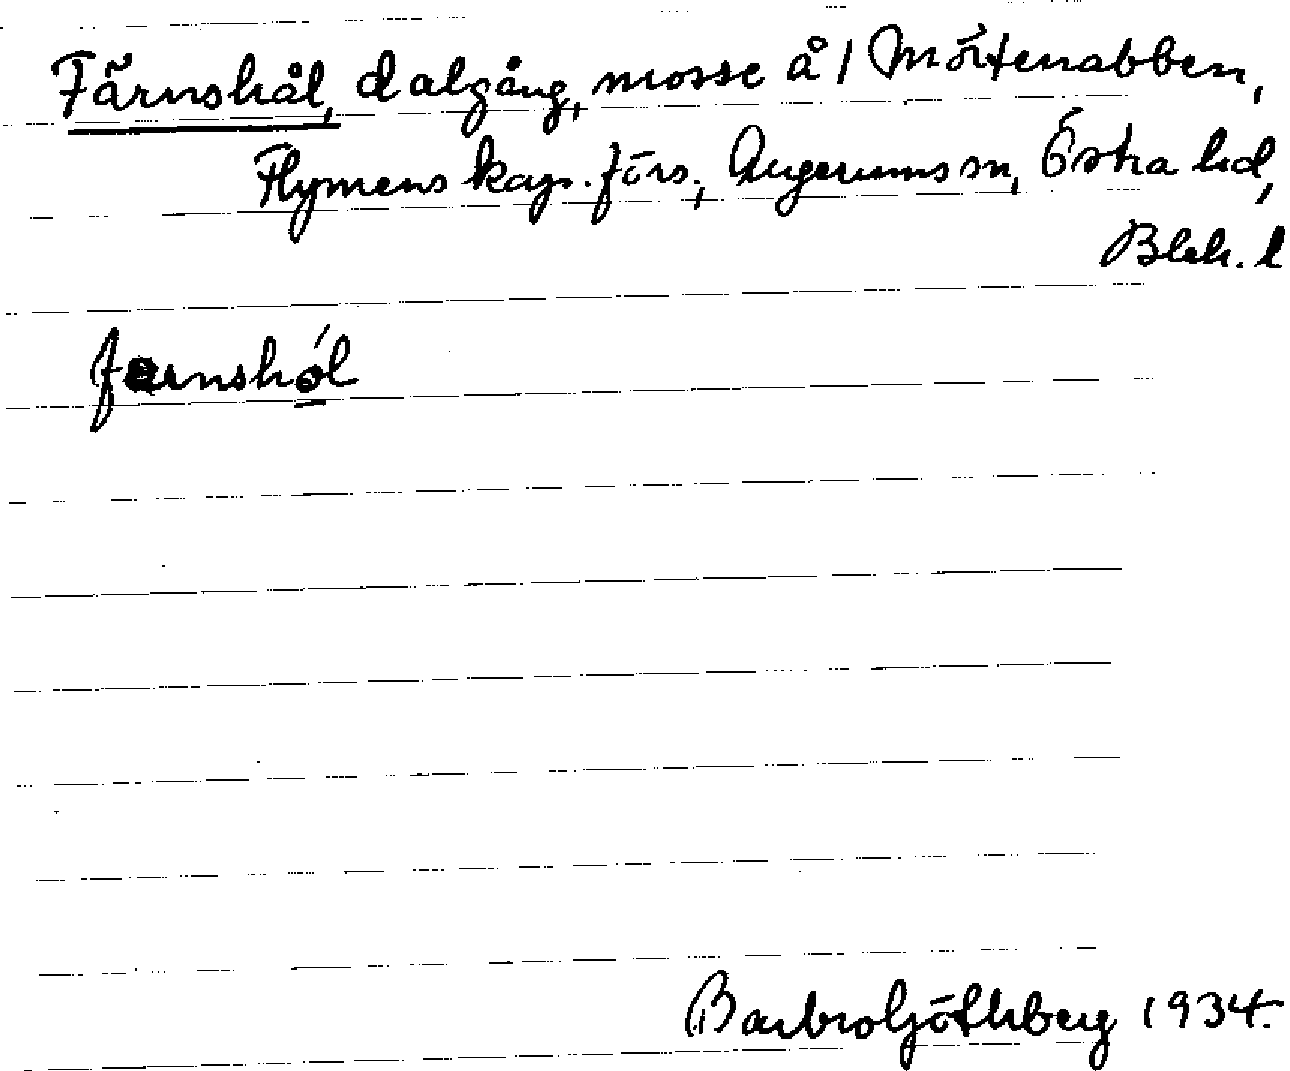 Färnshål, dalgång, mosse å 1 Mörtenabben,
Flymens kap. förs., Augerums sn, Östra hd,
Blek. l
farnshól
Barbro Göthberg 1934.